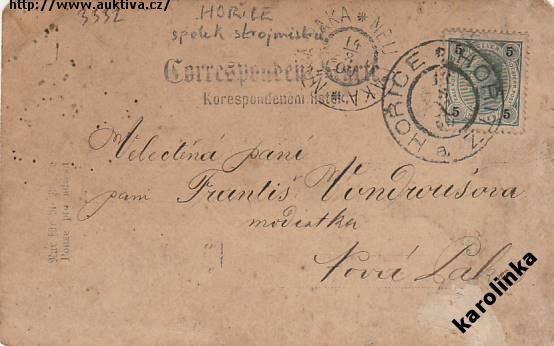 http://www.auktiva.cz/
3332
HOŘICE
spolek strojmistrů
Correspondenz-Karte
Korespondenční lístek
5 5
5 5
HOŘICE
Velectěná paní
paní Františ Vondroušova
modistka
Nová Paka
karolinka